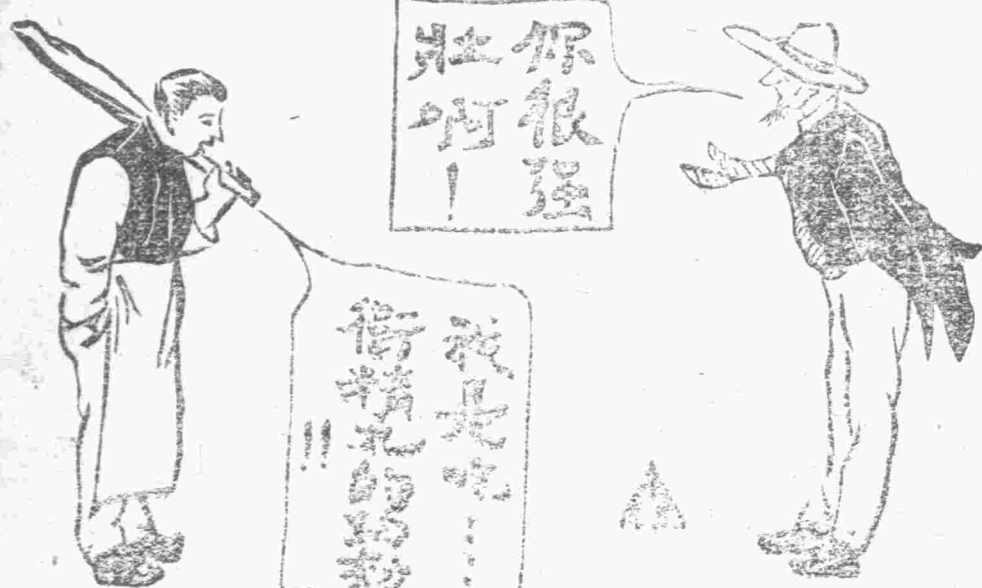 你很强
壯啊！
我是吃----
衛精丸的
!!!